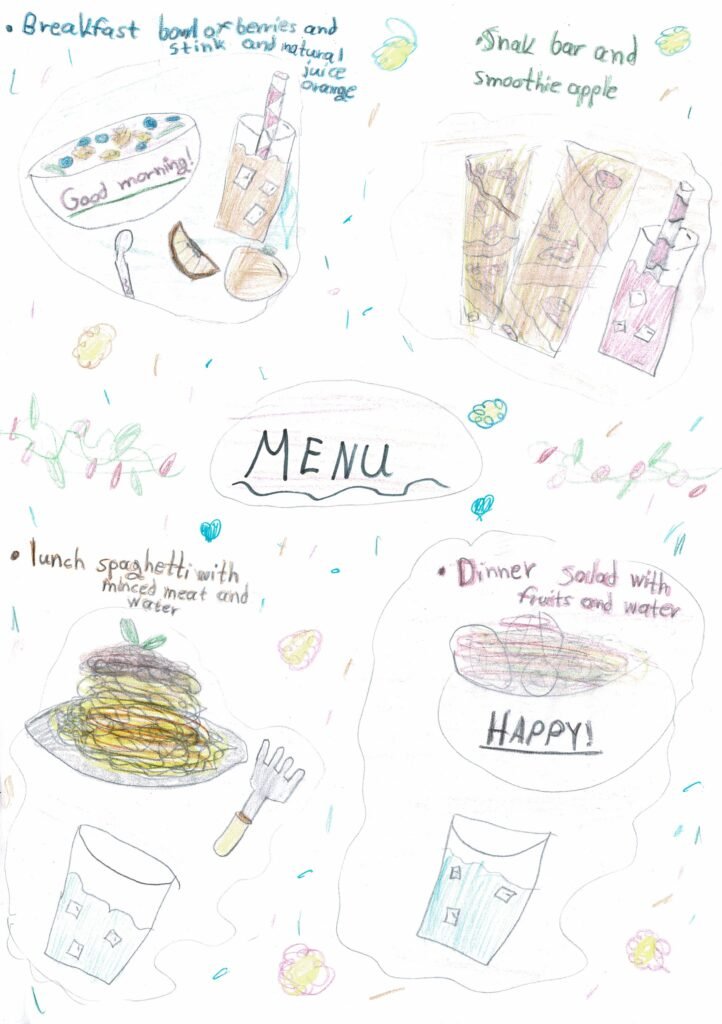 • Breakfast bowl of berries and
stink and natural
juice
orange
Good morning!
• Snak bar and
smoothie apple
MENU
• lunch spaghetti with
minced meat and
water
• Dinner salad with
fruits and water
HAPPY!